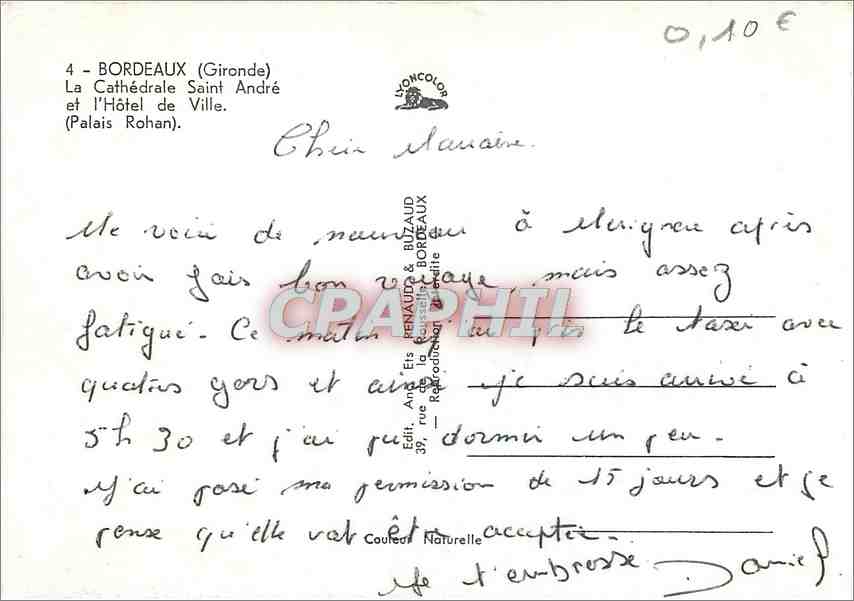 0,10 €
4 - BORDEAUX (Gironde)
La Cathédrale Saint André
et l'Hôtel de Ville.
(Palais Rohan).
LYONCOLOR
Me voici de nouveau à Merignac après
avoir fais bon voyage, mais assez
fatigué. Ce matin j'ai pris le taxi avec
quatres gars et ainsi je suis arrivé à
5h 30 et j'ai pu dormir un peu.
J'ai posé ma permission de 15 jours et je
pense qu'elle vat être acceptée.
Je t'embrasse. Daniel
Edit. And. Ets RENAUD & BUZAUD
39, rue de la Rousselle, BORDEAUX
— Reproduction interdite —
Couleur Naturelle
CPAPHIL